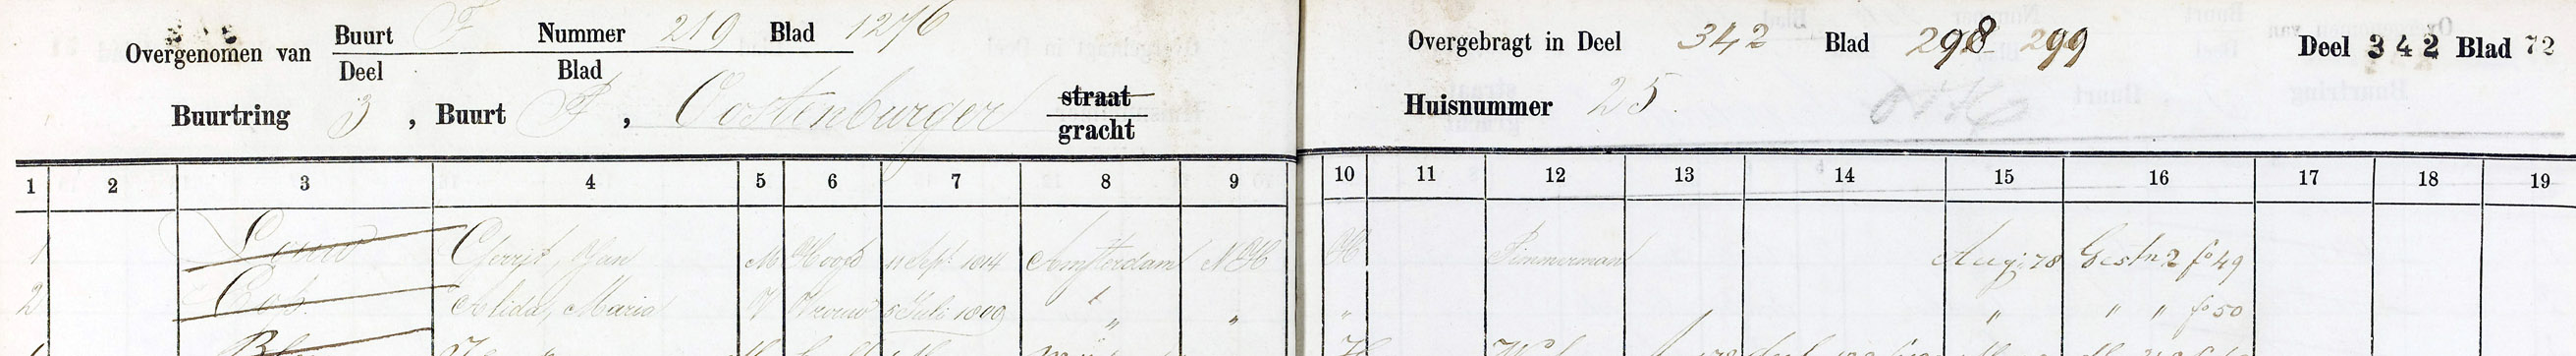 Overgenomen van Buurt F Nummer 219 Blad 1276
Deel Blad
Buurtring 3, Buurt F, Oostenburger straat
gracht
Overgebragt in Deel 342 Blad 298 299 Deel 342 Blad 72
Huisnummer 25.
1 2 3 4 5 6 7 8 9 10 11 12 13 14 15 16 17 18 19
1 Gerrit, Jan M Hoofd 11 Sept 1814 Amsterdam NH H Timmerman Aug: 78 Gest n 2 fo 49
2 Alida, Maria V Vrouw Juli 1809 " " " " " " fo 50